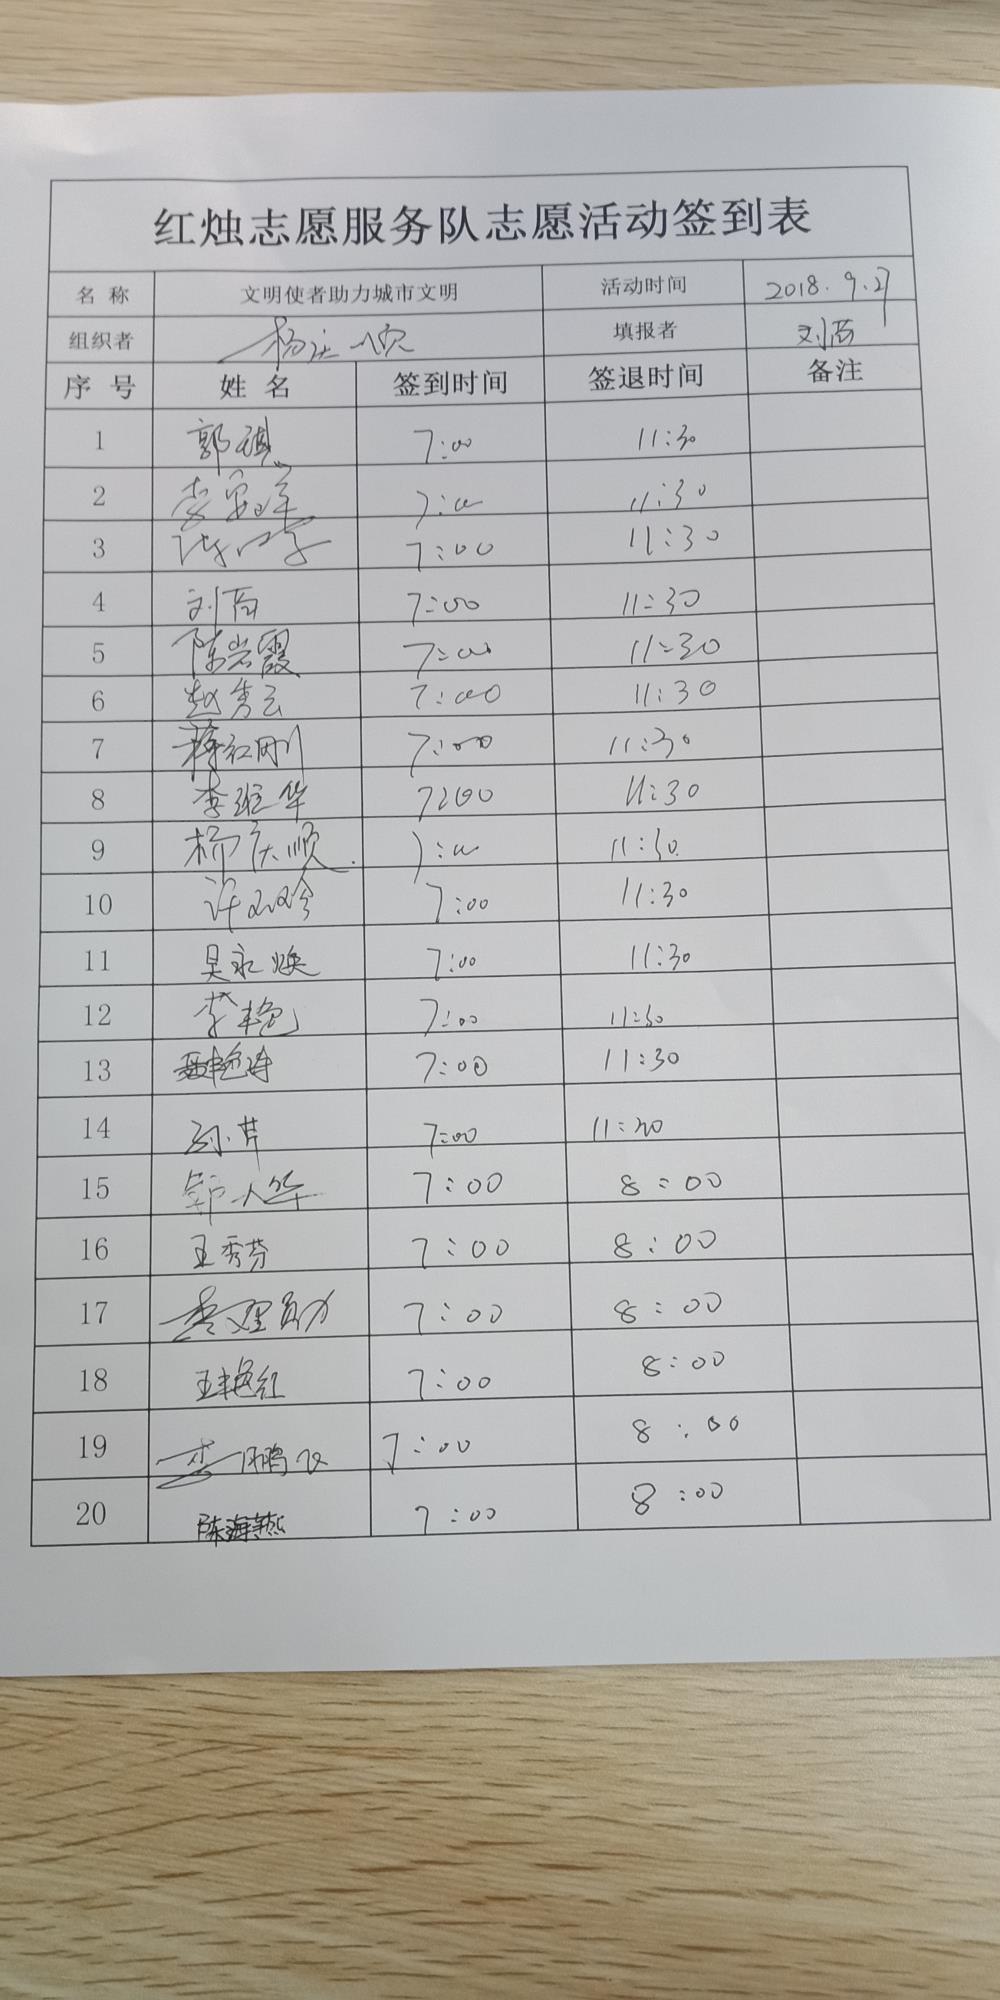 红烛志愿服务队志愿活动签到表
名 称 文明使者助力城市文明 活动时间 2018.9.27
组织者 杨庆顺 填报者 刘茜
序 号 姓 名 签到时间 签退时间 备注
1 郭琪 7:00 11:30
2 7:00 11:30
3 7:00 11:30
4 刘茜 7:00 11:30
5 陈岩霞 7:00 11:30
6 赵秀云 7:00 11:30
7 蒋红刚 7:00 11:30
8 李继华 7:00 11:30
9 杨庆顺 7:00 11:30
10 许双玲 7:00 11:30
11 吴永焕 7:00 11:30
12 李艳 7:00 11:30
13 聂艳涛 7:00 11:30
14 孙芹 7:00 11:30
15 郭大华 7:00 8:00
16 王秀芬 7:00 8:00
17 7:00 8:00
18 王艳红 7:00 8:00
19 7:00 8:00
20 陈海燕 7:00 8:00